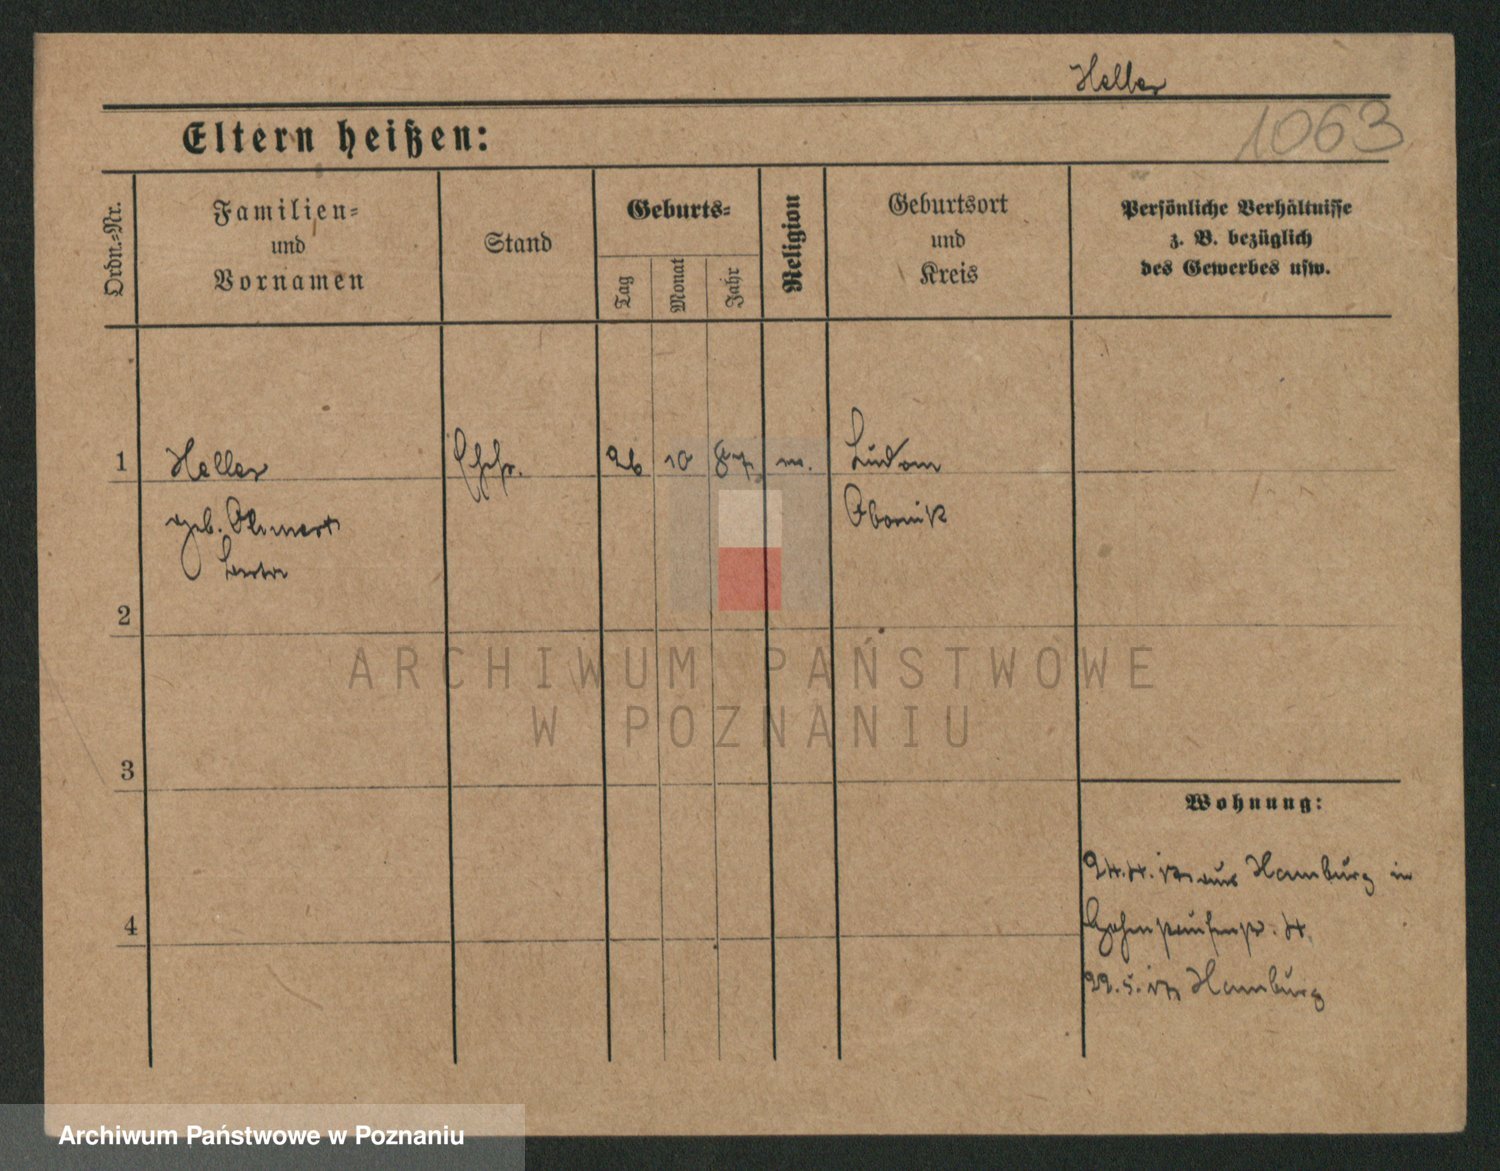 Heller
1063
Eltern heißen:
Ordn.-Nr.
Familien-
und
Vornamen
Stand
Geburts-
Tag
Monat
Jahr
Religion
Geburtsort
und
Kreis
Persönliche Verhältnisse
z. B. bezüglich
des Gewerbes usw.
1 Heller 26 10 Ludom
geb. Obornik
2
ARCHIWUM PAŃSTWOWE
W POZNANIU
3
Wohnung:
aus Hamburg in
4
22.5. Hamburg
Archiwum Państwowe w Poznaniu